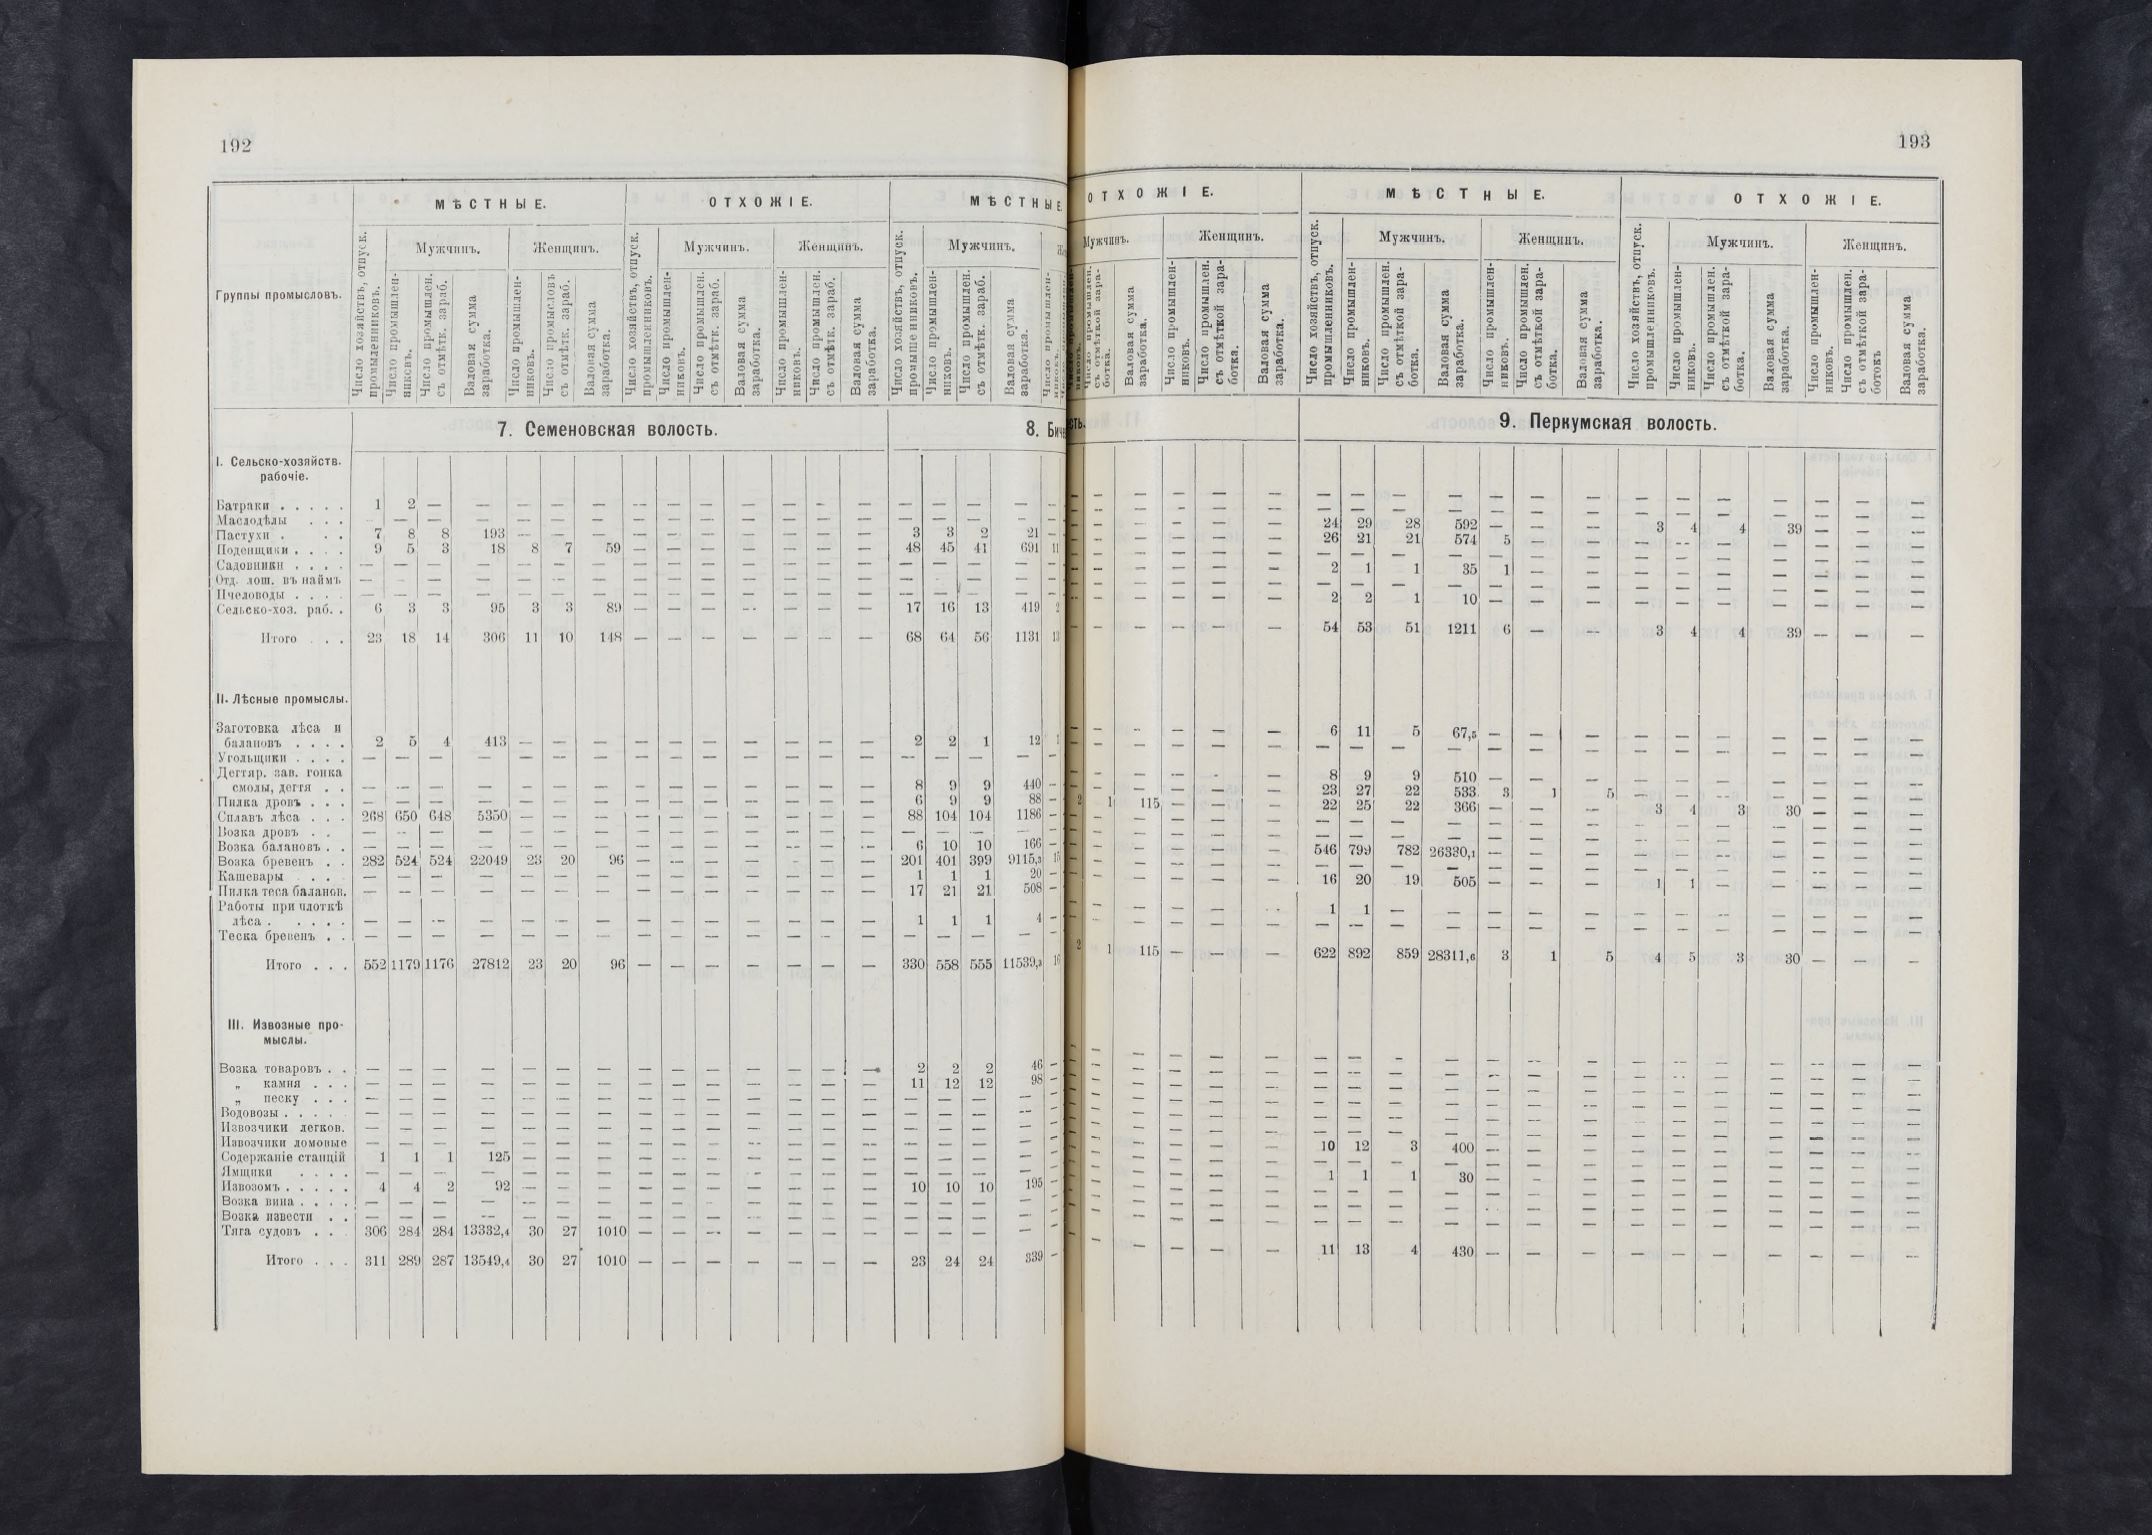 192
МѢСТНЫЕ. ОТХОЖІЕ. МѢСТНЫЕ.
Группы промысловъ.
Мужчинъ. Женщинъ. Мужчинъ. Женщинъ. Мужчинъ.
Число хозяйствъ, отпуск. промышленниковъ.
Число промышленниковъ.
Число промышлен. съ отмѣтк. зараб.
Валовая сумма заработка.
Число промышленниковъ.
Число промысловъ съ отмѣтк. зараб.
Валовая сумма заработка.
Число хозяйствъ, отпуск. промышленниковъ.
Число промышленниковъ.
Число промышлен. съ отмѣтк. зараб.
Валовая сумма заработка.
Число промышленниковъ.
Число промышлен. съ отмѣтк. зараб.
Валовая сумма заработка.
Число хозяйствъ, отпуск. промышенниковъ.
Число промышленниковъ.
Число промышлен. съ отмѣтк. зараб.
Валовая сумма заработка.
7. Семеновская волость. 8.
I. Сельско-хозяйств.
рабочіе.
Батраки . . . . . 1 2 — — — — — — — — — — — — — — — — —
Маслодѣлы . . . — — — — — — — — — — — — — — — — — —
Пастухи . . . 7 8 8 193 — — — — — — — — — — 3 3 2 21 —
Поденщики . . . . 9 5 3 18 8 7 59 — — — — — — — 48 45 41 691 11
Садовники . . . . — — — — — — — — — — — — — — — — — — —
Отд. лош. въ наймъ — — — — — — — — — — — — — — — — — —
Пчеловоды . . . . — — — — — — — — — — — — — — — — — — —
Сельско-хоз. раб. . 6 3 3 95 3 3 89 — — — — — — — 17 16 13 419 2
Итого . . . 23 18 14 306 11 10 148 — — — — — — — 68 64 56 1131 13
II. Лѣсные промыслы.
Заготовка лѣса и
балановъ . . . . 2 5 4 413 — — — — — — — — — — 2 2 1 12 1
Угольщики . . . . — — — — — — — — — — — — — — — — — — —
Дегтяр. зав. гонка
смолы, дегтя . . — — — — — — — — — — — — — — 8 9 9 440 —
Пилка дровъ . . . — — — — — — — — — — — — — — 6 9 9 88 —
Сплавъ лѣса . . . 268 650 648 5350 — — — — — — — — — — 88 104 104 1186 —
Возка дровъ . . — — — — — — — — — — — — — — — — — — —
Возка балановъ . . — — — — — — — — — — — — — — 6 10 10 166 —
Возка бревенъ . . 282 524 524 22049 23 20 96 — — — — — — — 201 401 399 9115,3 15
Кашевары . . . — — — — — — — — — — — — — — 1 1 1 20 —
Пилка теса баланов. — — — — — — — — — — — — — — 17 21 21 508 —
Работы при плоткѣ
лѣса . . . . . — — — — — — — — — — — — — — 1 1 1 4 —
Теска бревенъ . . — — — — — — — — — — — — — — — — — — —
Итого . . . 552 1179 1176 27812 23 20 96 — — — — — — — 330 558 555 11539,3 16
III. Извозные про-
мыслы.
Возка товаровъ . . — — — — — — — — — — — — — — 2 2 2 46 —
„ камня . . . — — — — — — — — — — — — — — 11 12 12 98 —
„ песку . . . — — — — — — — — — — — — — — — — — — —
Водовозы . . . . — — — — — — — — — — — — — — — — — — —
Извозчики легков. — — — — — — — — — — — — — — — — — — —
Извозчики ломовые — — — — — — — — — — — — — — — — — — —
Содержаніе станцій 1 1 1 125 — — — — — — — — — — — — — — —
Ямщики . . . . — — — — — — — — — — — — — — — — — — —
Извозомъ . . . . . 4 4 2 92 — — — — — — — — — — 10 10 10 195 —
Возка вина . . . . — — — — — — — — — — — — — — — — — — —
Возка извести . . — — — — — — — — — — — — — — — — — — —
Тяга судовъ . . . 306 284 284 13332,4 30 27 1010 — — — — — — — — — — — —
Итого . . . 311 289 287 13549,4 30 27 1010 — — — — — — — 23 24 24 339 —
193
ОТХОЖІЕ. МѢСТНЫЕ. ОТХОЖІЕ.
Мужчинъ. Женщинъ. Мужчинъ. Женщинъ. Мужчинъ. Женщинъ.
Число промышлен. съ отмѣткой заработка.
Валовая сумма заработка.
Число промышленниковъ.
Число промышлен. съ отмѣткой заработка.
Валовая сумма заработка.
Число хозяйствъ, отпуск. промышленниковъ.
Число промышленниковъ.
Число промышлен. съ отмѣткой заработка.
Валовая сумма заработка.
Число промышленниковъ.
Число промышлен. съ отмѣткой заработка.
Валовая сумма заработка.
Число хозяйствъ, отпуск. промышленниковъ.
Число промышленниковъ.
Число промышлен. съ отмѣткой заработка.
Валовая сумма заработка.
Число промышленниковъ.
Число промышлен. съ отмѣткой заработокъ
Валовая сумма заработка.
9. Перкумская волость.
— — — — — — — — — — — — — — — — — — — —
— — — — — — 24 29 28 592 — — — 3 4 4 39 — — —
— — — — — — 26 21 21 574 5 — — — — — — — — —
— — — — — — — — — — — — — — — — — — — —
— — — — — — 2 1 1 35 1 — — — — — — — — —
— — — — — — — — — — — — — — — — — — — —
— — — — — — 2 2 1 10 — — — — — — — — — —
— — — — — — 54 53 51 1211 6 — — 3 4 4 39 — — —
— — — — — — 6 11 5 67,5 — — — — — — — — — —
— — — — — — — — — — — — — — — — — — — —
— — — — — — 8 9 9 510 — — — — — — — — — —
— — — — — — 23 27 22 533 3 1 5 — — — — — — —
2 1 115 — — — 22 25 22 366 — — — 3 4 3 30 — — —
— — — — — — — — — — — — — — — — — — — —
— — — — — — — — — — — — — — — — — — — —
— — — — — — 546 799 782 26330,1 — — — — — — — — — —
— — — — — — — — — — — — — — — — — — — —
— — — — — — 16 20 19 505 — — — 1 1 — — — — —
— — — — — — 1 1 — — — — — — — — — — — —
— — — — — — — — — — — — — — — — — — — —
2 1 115 — — — 622 892 859 28311,6 3 1 5 4 5 3 30 — — —
— — — — — — — — — — — — — — — — — — — —
— — — — — — — — — — — — — — — — — — — —
— — — — — — — — — — — — — — — — — — — —
— — — — — — — — — — — — — — — — — — — —
— — — — — — — — — — — — — — — — — — — —
— — — — — — — — — — — — — — — — — — — —
— — — — — — 10 12 3 400 — — — — — — — — — —
— — — — — — — — — — — — — — — — — — — —
— — — — — — 1 1 1 30 — — — — — — — — — —
— — — — — — — — — — — — — — — — — — — —
— — — — — — — — — — — — — — — — — — — —
— — — — — — — — — — — — — — — — — — — —
— — — — — — 11 13 4 430 — — — — — — — — — —